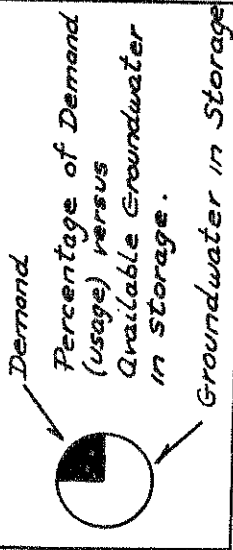 Demand
Percentage of Demand
(usage) versus
Available Groundwater
in storage.
Groundwater in Storage